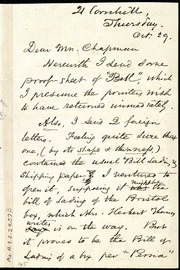 21 Cornhill,
Thursday.
Oct. 29.
Dear Mrs. Chapman
Herewith I send some
proof sheet of "Bell," which
I presume the printers wish
to have returned immediately.
Also, I send 2 foreign
letters. Feeling quite sure that
one, (by its shape & thickness)
contained the usual Bill Lading &
Shipping papers, I ventured to
open it, supposing it might be the
bill of lading of the Bristol
box, which Mrs. Herbert Thomas
writes is on the way. But
it proves to be the Bill of
Lading of a box per "Persia"